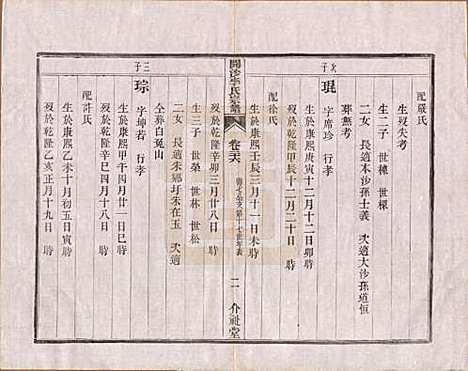 配嚴氏
生歿失考
生二子 世樓 世樑
二女 長適本沙孫士義 次適大沙孫道恒
葬無考
次子
琨 字席珍 行孝
生於康熙庚寅十二月十二日卯時
歿於乾隆 年十二月二十日 時
配徐氏
生於康熙壬辰三月十一日未時
開沙李氏宗譜
卷三六
二 介祉堂
歿於乾隆辛卯三月廿八日 時
生三子 世榮 世林 世松
二女 長適朱鄉圩朱在玉 次適
仝葬白兎山
三子
琮 字坤若 行孝
生於康熙甲午四月廿一日巳時
歿於乾隆辛巳四月十八日 時
配許氏
生於康熙乙未十月初五日寅時
歿於乾隆乙亥正月十九日 時